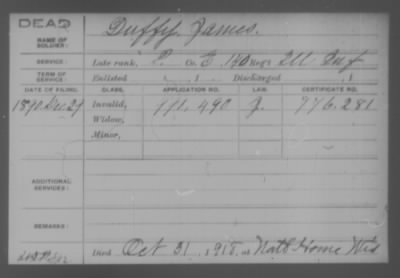 DEAD
NAME OF SOLDIER: Duffy, James.
SERVICE: Late rank, P Co. E, 140 Reg't Ill Inf
TERM OF SERVICE: Enlisted , 1 Discharged , 1
DATE OF FILING. CLASS. APPLICATION NO. LAW. CERTIFICATE NO.
1890 Dec 29 Invalid, 911.490 J. 776.281
Widow,
Minor,
ADDITIONAL SERVICES:
REMARKS:
Died Oct 31, 1918, at Nat'l Home Wis